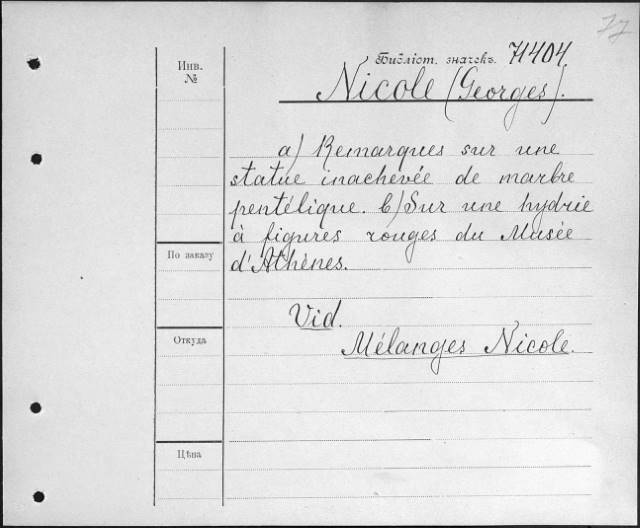 77
Библіот. значекъ. 71404.
Инв.
№
Nicole (Georges).
a) Remarques sur une
statue inachevée de marbre
pentélique. b) Sur une hydrie
à figures rouges du Musée
d'Athènes.
По заказу
Vid.
Откуда
Mélanges Nicole.
Цѣна